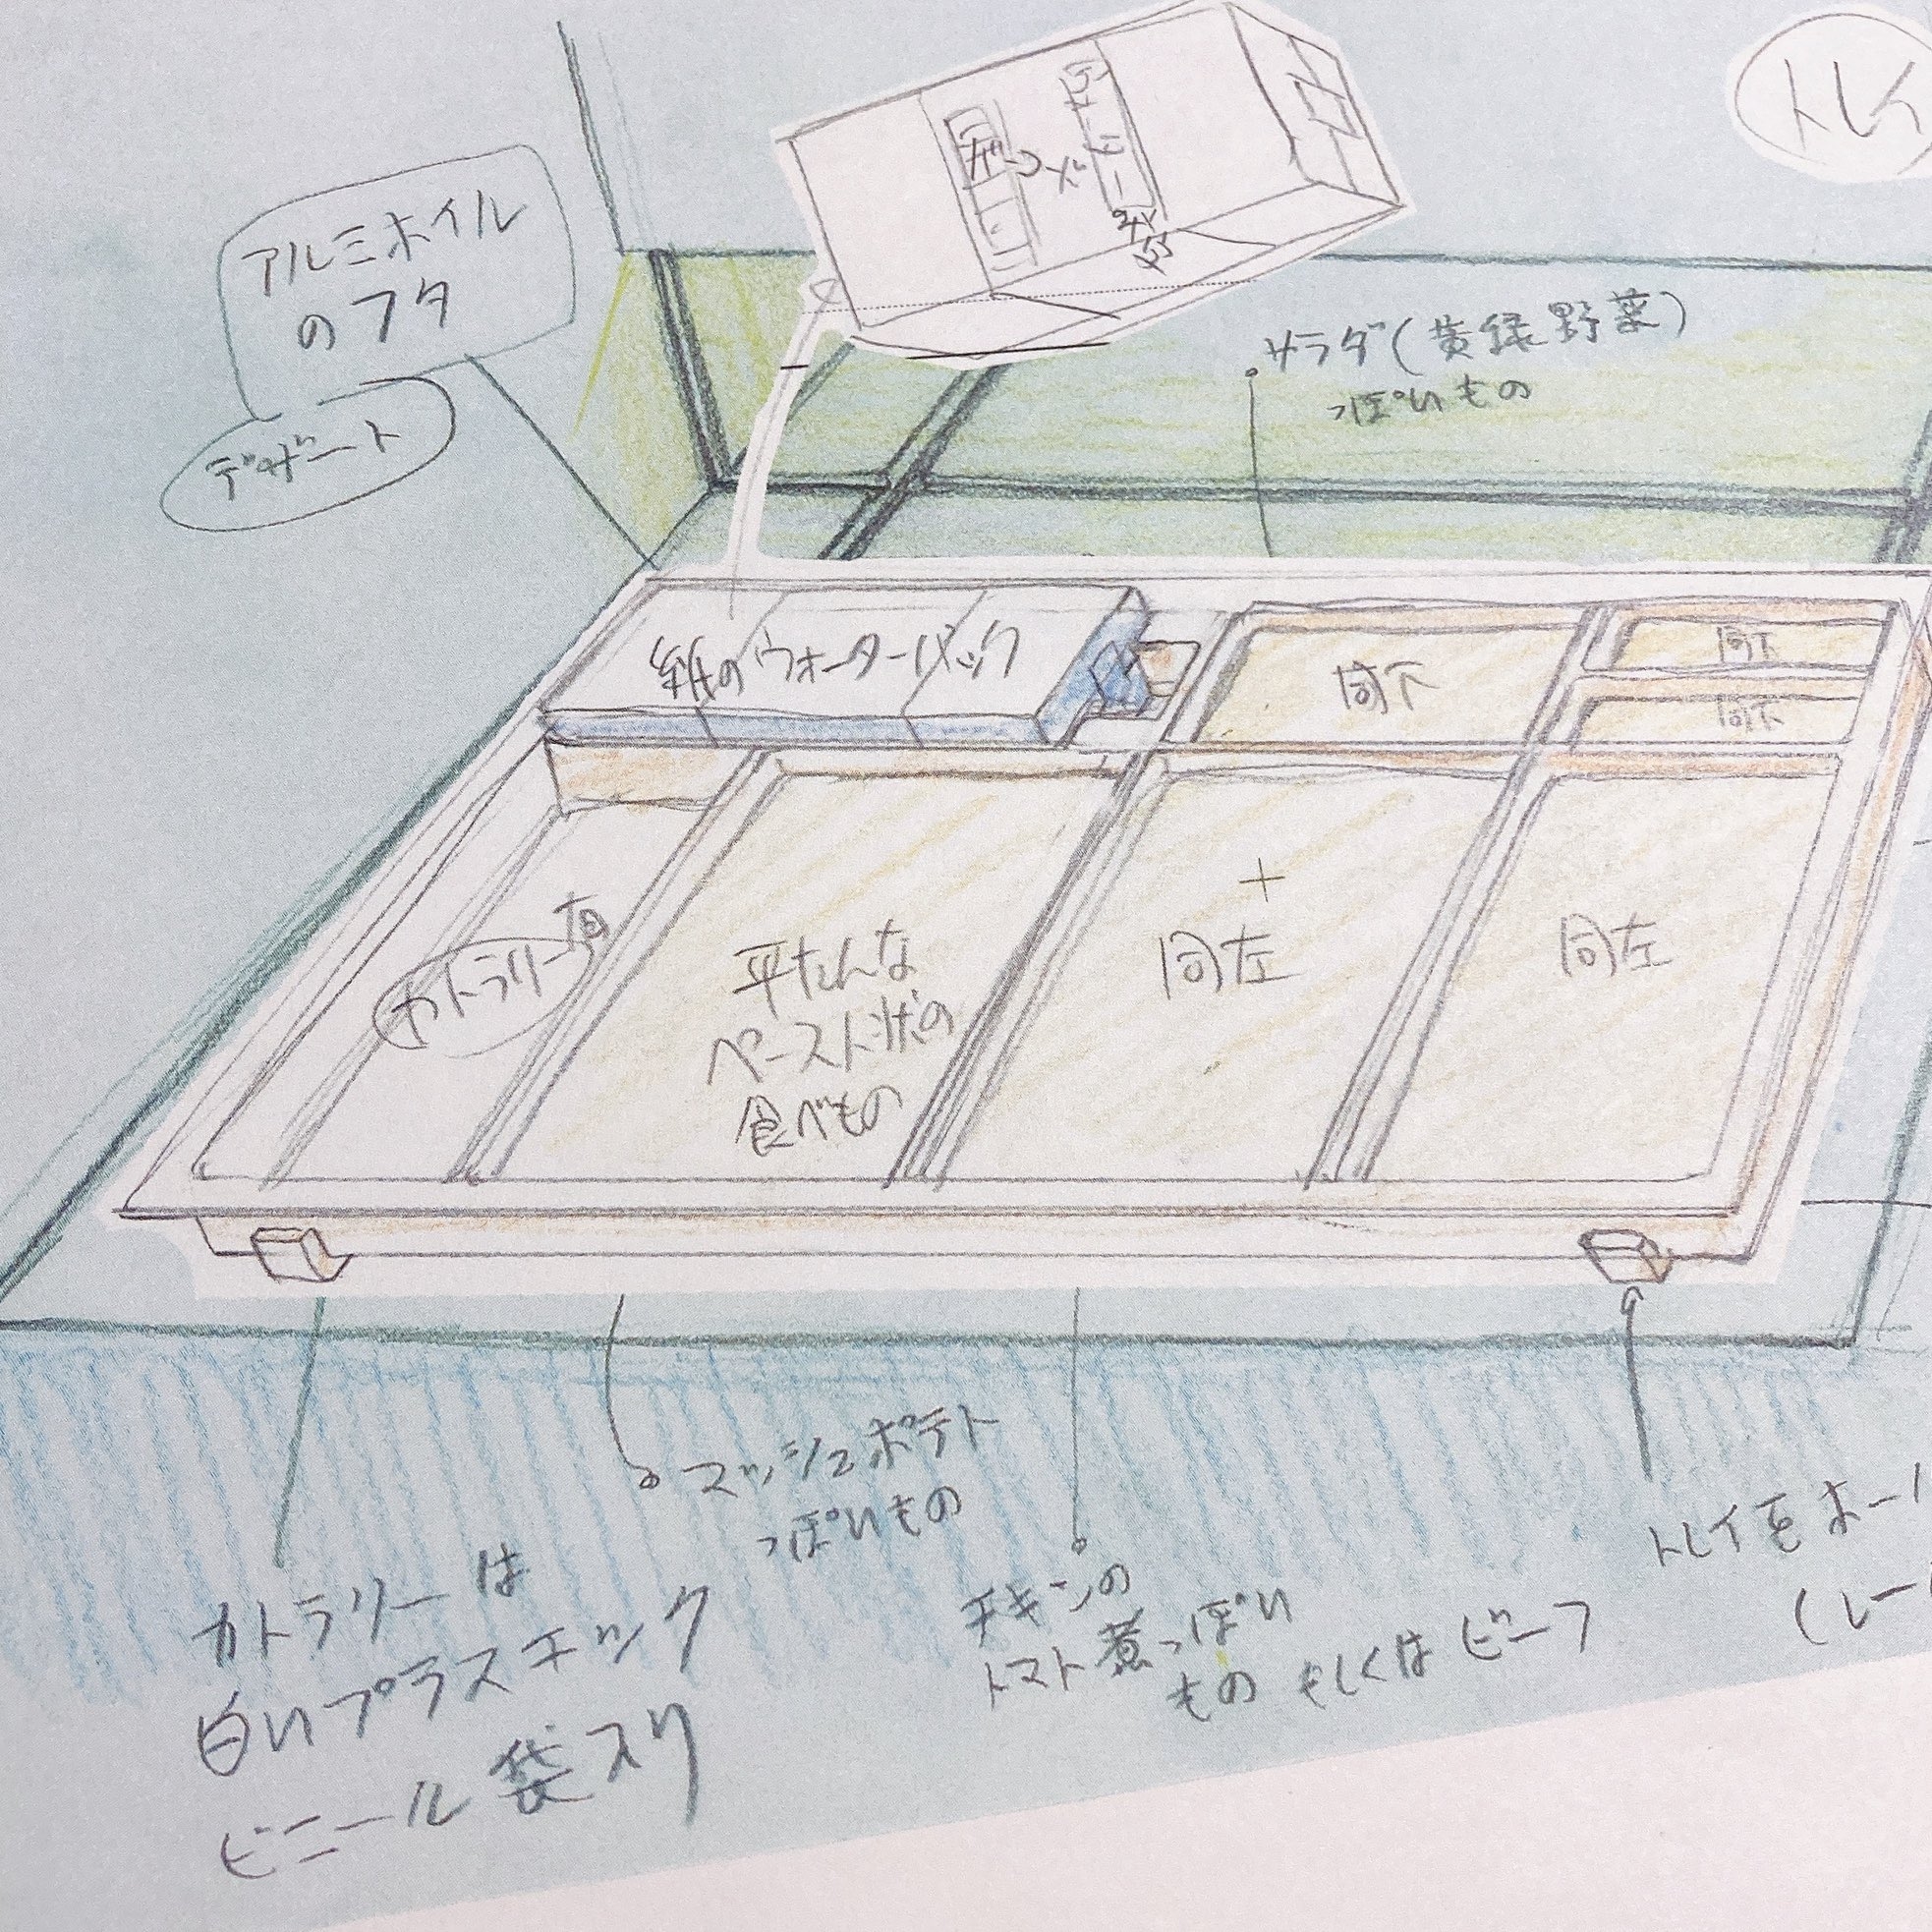 トレイ
アルミホイル
のフタ
デザート
サラダ(黄緑野菜)
っぽいもの
紙のウォーターパック
同下
同下
同下
カトラリー
平たんな
ペースト状の
食べもの
同左
同左
マッシュポテト
っぽいもの
カトラリーは
白いプラスチック
ビニール袋入り
チキンの
トマト煮っぽい
もの もしくはビーフ
トレイをホー
(レー